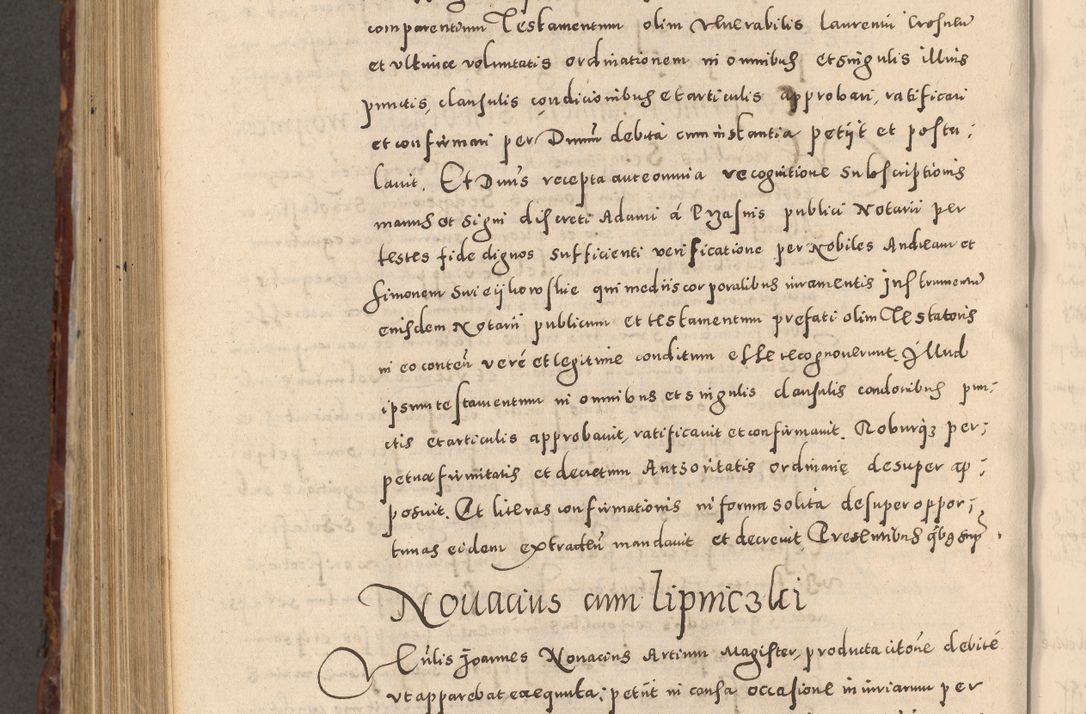 comparentium Testamentum olim Venerabilis laurentii Crosnen̄
et vltimæ voluntatis ordinationem in omnibus et singulis illius
punctis, clausulis condicionibus et articulis approbari, ratificari
et confirmari per Dnūm debita cum instantia petijt et postu;
lauit. Et Dnūs recepta ante omnia recognitione subscriptionis
manus et signi discreti Adami á Pyasnis publici Notarii per
testes fide dignos sufficienti verificatione per Nobiles Andream et
Simonem Swieijkowskie qui mediis corporalibus iuramentis Instrumentū
eiusdem Notarii publicum et testamentum prefati olim Testatoris
in eo conten̄ veré et legitime conditum esse recognouerunt Illud
ipsum testamentum in omnibus et singulis clausulis condonibus pun;
ctis et articulis approbauit, ratificauit et confirmauit. Roburqȝ per;
petuæ firmitatis et decretum Autsoritatis ordinarię desuper ap;
posuit. Et literas confirmationis in forma solita desuper oppor;
tunas eidem extractū mandauit et decreuit Presentibus qībꝰ sup̄
Nouacius cum lipniczki
Ven̄lis Joannes Nouacius Artium Magister, producta citōne debité
vt apparebat exequuta; petiit in causa occasione iniuriarum per